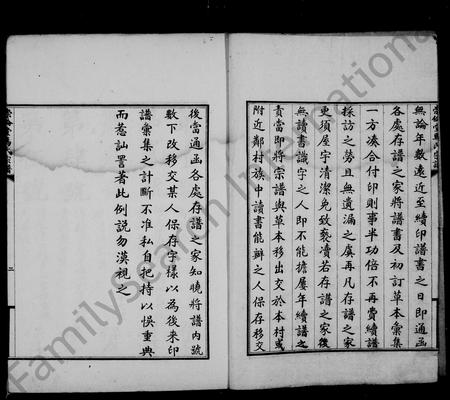 無論年數遠近至續印譜書之日即通函
各處存譜之家將譜書及初訂草本彙集
一方湊合付印則事半功倍不再費續譜
採訪之勞且無遺漏之虞再凡存譜之家
更須屋宇清潔免致褻凟若存譜之家後
無讀書識字之人即不能擔屢年續譜之
責當即將宗譜與草本移出交於本村或
附近鄰村族中讀書能辦之人保存移交
後當通函各處存譜之家知曉將譜內號
數下改移交某人保存字樣以為後來印
譜彙集之計斷不准私自把持以悞重典
而惹訕詈著此例說勿漠視之
二
FamilySearch International